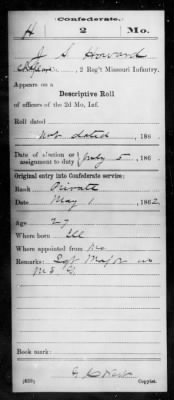 Confederate.
H 2 Mo.
J. S. Howard
, 2 Reg't Missouri Infantry.
Appears on a
Descriptive Roll
of officers of the 2d Mo. Inf.
Roll dated
Not dated, 186
Date of election or assignment to duty July 5, 186
Original entry into Confederate service:
Rank Private
Date May 1, 1862
Age 27
Where born Ill
Where appointed from Mo
Remarks: Sgt Major
Book mark:
(639) Copyist.